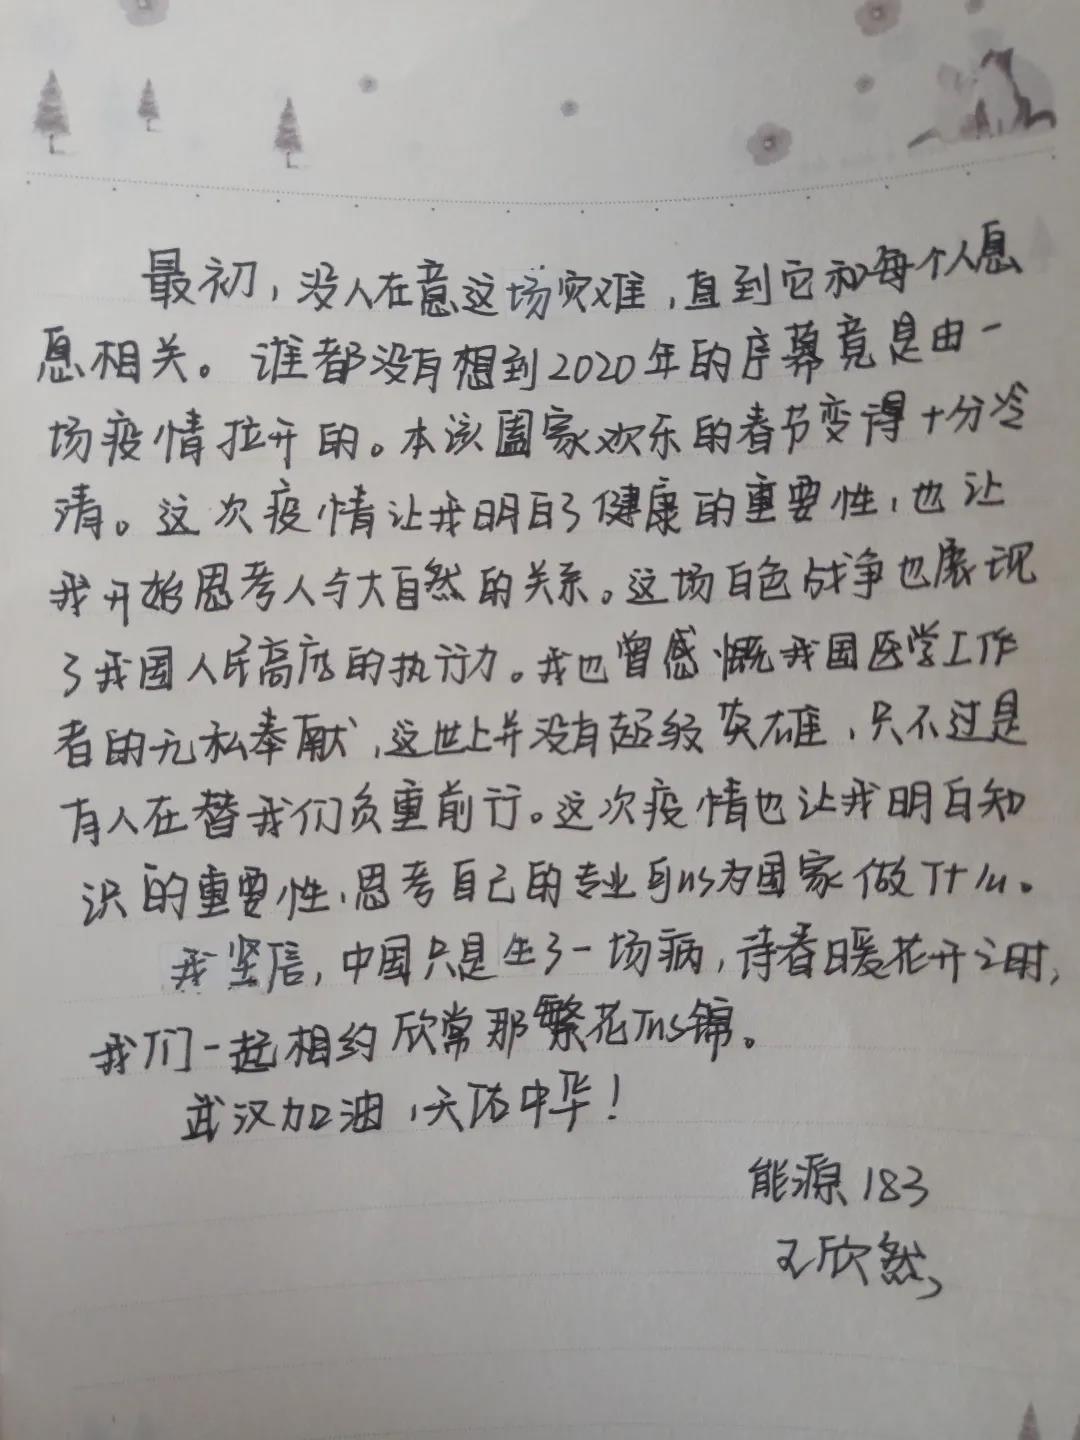 最初，没人在意这场灾难，直到它和每个人息
息相关。谁都没有想到2020年的序幕竟是由一
场疫情拉开的。本该阖家欢乐的春节变得十分冷
清。这次疫情让我明白了健康的重要性，也让
我开始思考人与大自然的关系。这场白色战争也展现
了我国人民高度的执行力。我也曾感慨我国医学工作
者的无私奉献，这世上并没有超级英雄，只不过是
有人在替我们负重前行。这次疫情也让我明白知
识的重要性，思考自己的专业可以为国家做什么。
我坚信，中国只是生了一场病，待春暖花开之时，
我们一起相约欣常那繁花似锦。
武汉加油，天佑中华！
能源183
王欣然